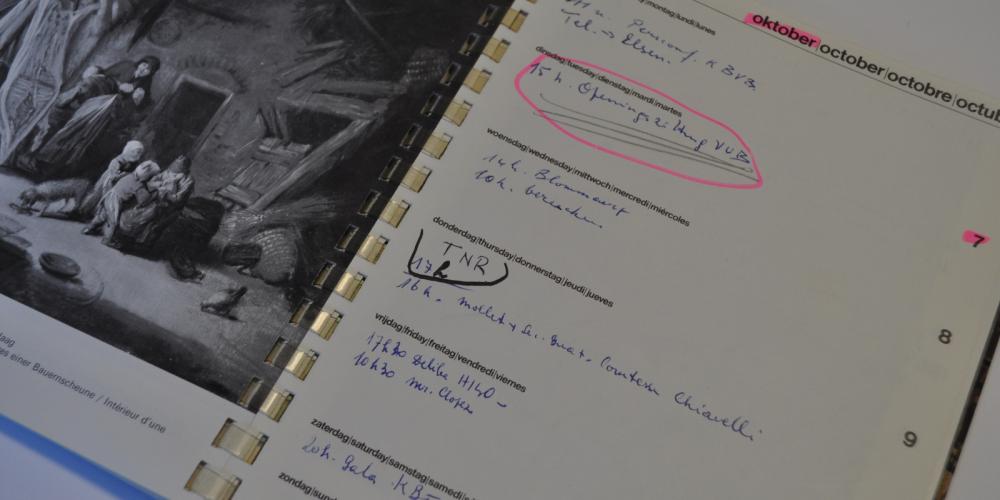 oktober|october|octobre|octub
/montag|lundi|lunes
KBVB
Tel.
dinsdag|tuesday|dienstag|mardi|martes
15 h. Openingszitting VUB
woensdag|wednesday|mittwoch|mercredi|miércoles
14h. Blommaert
10h.
7
donderdag|thursday|donnerstag|jeudi|jueves
TNR
17h
16h. Comtesse Chiarelli
8
vrijdag|friday|freitag|vendredi|viernes
17h30 H140 -
10h30 mr.
9
zaterdag|saturday|samstag|samedi|s
20h. Gala KB
zondag|sund
aag
es einer Bauernscheune / Intérieur d'une